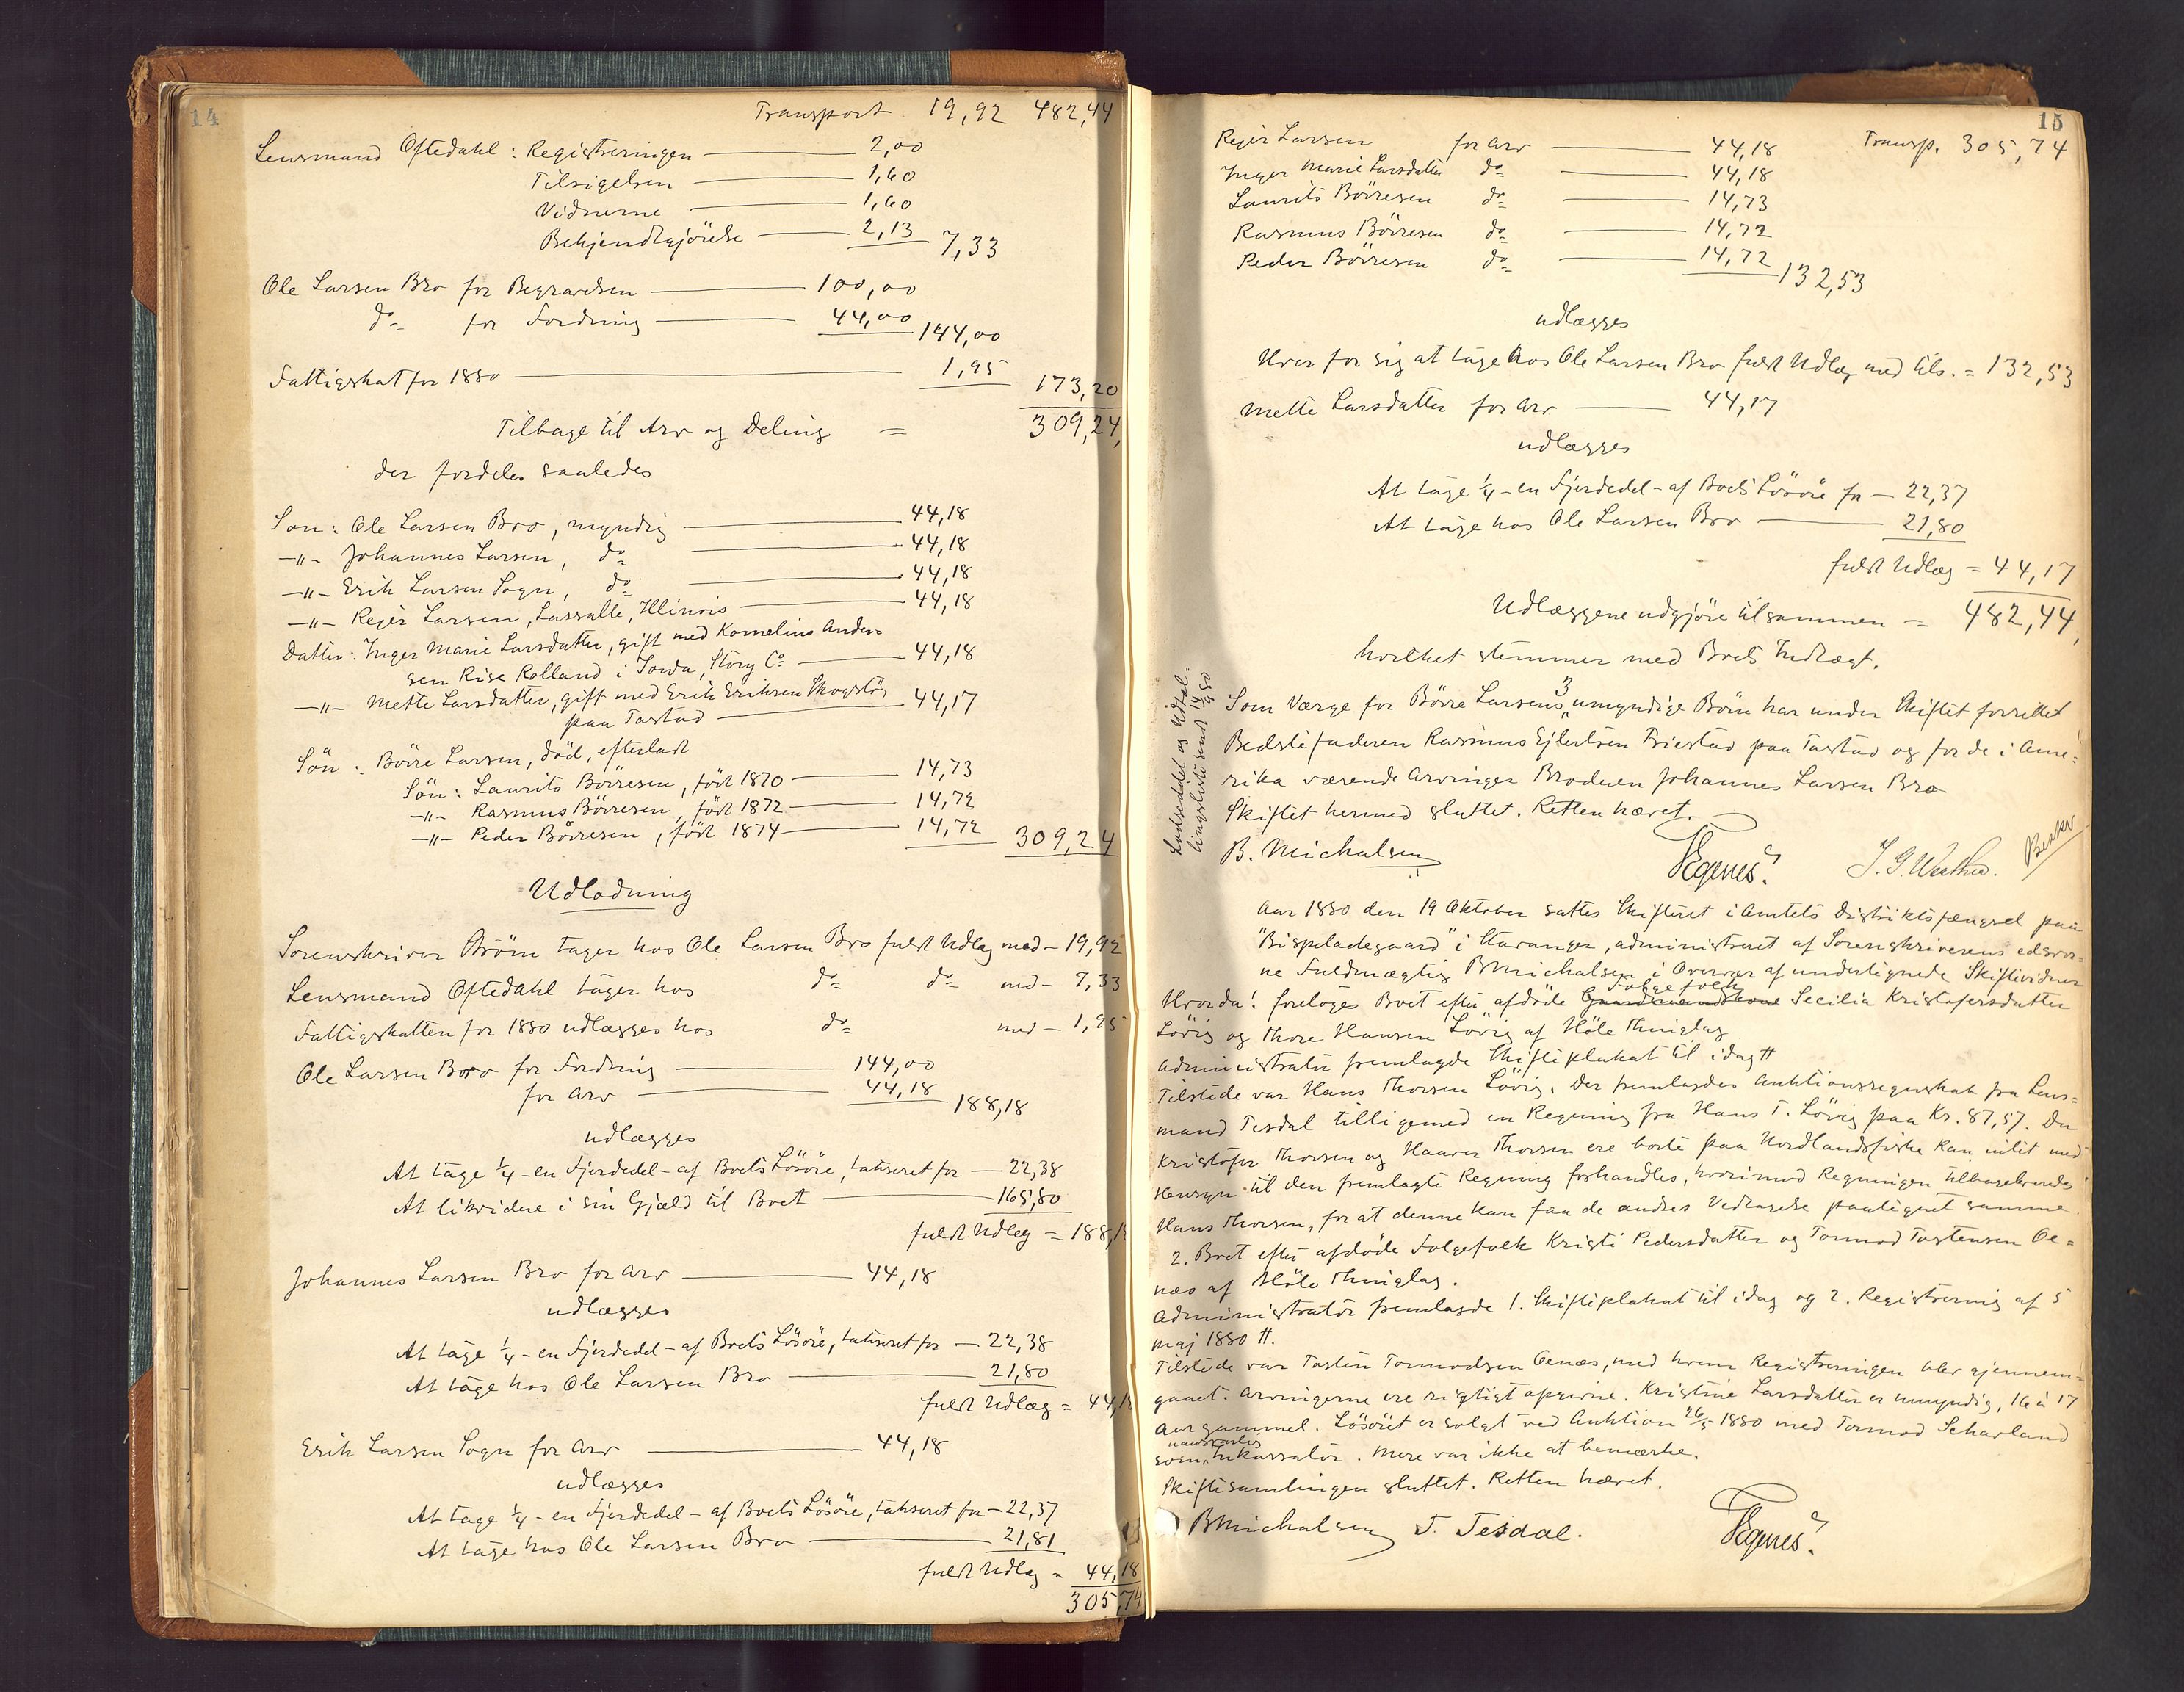 14
Transport 19,92 482,44
Lensmand Oftedahl: Registreringen 2,00
Tilsigelsen 1,60
Vidnerne 1,60
Bekjendtgjörelse 2,13 7,33
Ole Larsen Bro for Begravelsen 100,00
do for Fordring 44,00 144,00
Fattigskat for 1880 1,95 173,20
Tilbage til Arv og Deling = 309,24
der fordeles saaledes
Søn: Ole Larsen Bro, myndig 44,18
-"- Johannes Larsen, do 44,18
-"- Erik Larsen Sogn, do 44,18
-"- Rejer Larsen, Lassalle, Illinois 44,18
Datter: Inger Marie Larsdatter, gift med Kornelius Ander=
sen Rise Rolland i Iowa, Story Co 44,18
-"- Mette Larsdatter, gift med Erik Eriksen Skogstö,
paa Tastad 44,17
Sön: Börre Larsen, död, efterladt
Sön: Laurits Börresen, född 1870 14,73
-"- Rasmus Börresen, född 1872 14,72
-"- Peder Börresen, född 1874 14,72 309,24
Udlodning
Sorenskriver Bröm tager hos Ole Larsen Bro fuldt Udlæg med - 19,92
Lensmand Oftedahl tager hos do do med - 7,33
Fattigskatten for 1880 udlægges hos do med - 1,95
Ole Larsen Bro for Fordring 144,00
for Arv 44,18 188,18
udlægges
At tage 1/4 - en Fjerdedel - af Boets Lösöre, takseret for - 22,38
At likvidere i sin Gjæld til Boet 165,80
fuldt Udlæg = 188,18
Johannes Larsen Bro for Arv 44,18
udlægges
At tage 1/4 - en Fjerdedel - af Boets Lösöre, takseret for - 22,38
At tage hos Ole Larsen Bro 21,80
fuldt Udlæg = 44,18
Erik Larsen Sogn for Arv 44,18
udlægges
At tage 1/4 - en Fjerdedel - af Boets Lösöre, takseret for - 22,37
At tage hos Ole Larsen Bro 21,81
fuldt Udlæg = 44,18
305,74
15
Rejer Larsen for Arv 44,18 Transp. 305,74
Inger Marie Larsdatter do 44,18
Laurits Börresen do 14,73
Rasmus Börresen do 14,72
Peder Börresen do 14,72 132,53
udlægges
Hver for sig at tage hos Ole Larsen Bro fuldt Udlæg med tils. = 132,53
Mette Larsdatter for Arv 44,17
udlægges
At tage 1/4 - en Fjerdedel - af Boets Lösöre for - 22,37
At tage hos Ole Larsen Bro 21,80
fuldt Udlæg = 44,17
Udlæggene udgjöre tilsammen = 482,44,
hvilket stemmer med Boets Indtægt.
Som Værge for Börre Larsens 3 umyndige Börn har under Skiftet forrettet
Bedstefaderen Rasmus Ejlertsen Friestad paa Tastad og for de i Ame=
rika værende Arvinger Broderen Johannes Larsen Bro
Skiftet hermed sluttet. Retten hævet.
B. Michalsen Segnes. Beskr
Aar 1880 den 19 Oktober sattes Skifteret i Amtets Distriktsfængsel paa
"Bispeladegaard" i Stavanger, administreret af Sorenskriverens edsvor=
ne Fuldmægtig B Michalsen i Overvær af undertegnede Skiftevidner
Hvorda! foretoges Boet efter afdöde Gaardmandskone Folgefolk Secilia Kristofersdatter
Lövig og Thore Hansen Lövig af Höle Thinglag
Administrator fremlagde Skifteplakat til idag #
Tilstede var Hans Thorsen Lövig. Der fremlagdes Auktionsregnskab fra Lens=
mand Tesdal tilligemed en Regning fra Hans T. Lövig paa Kr. 87,57. Da
Kristofer Thorsen og Haaver Thorsen ere borte paa Nordlandsfiske kan intet med
Hensyn til den fremlagte Regning forhandles, hvorimod Regningen tilbageleveredes
Hans Thorsen, for at denne kan faa de andres Vedtagelse paategnet samme.
2. Boet efter afdöde Folgefolk Kristi Pedersdatter og Tormod Tostensen Oe=
næs af Höle Thinglag.
Administrator fremlagde 1. Skifteplakat til idag og 2. Registrering af 5
Maj 1880 #.
Tilstede var Tosten Tormodsen Oenæs, med hvem Registreringen blev gjennem=
gaaet. Arvingerne ere rigtigt opgivne. Kristine Larsdatter er umyndig, 16 à 17
Aar gammel. Lösöret er solgt ved Auktion 26/5 1880 med Tormod Scharland
som Inkassator. Mere var ikke at bemærke.
Skiftesamlingen sluttet. Retten hævet.
B Michalsen T. Tesdal. Segnes.